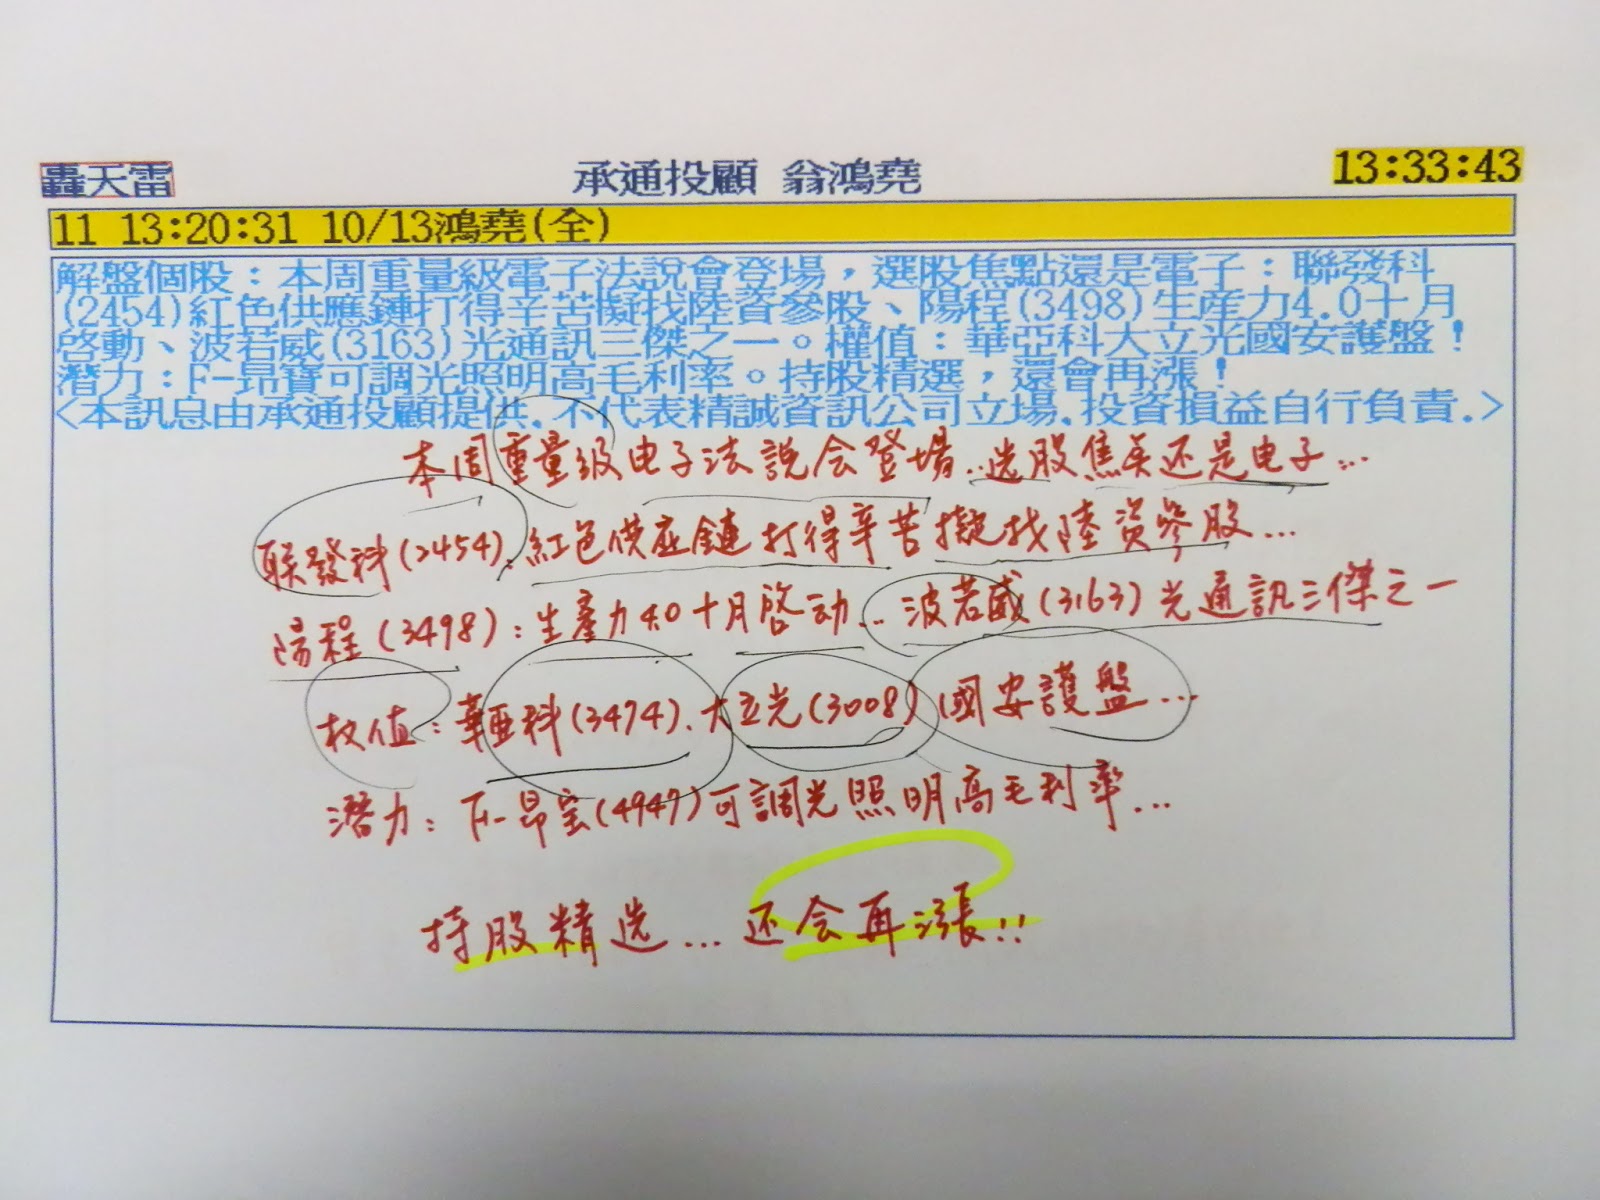 轟天雷 承通投顧 翁鴻堯 13:33:43
11 13:20:31 10/13鴻堯(全)
解盤個股：本周重量級電子法說會登場，選股焦點還是電子：聯發科
(2454)紅色供應鏈打得辛苦擬找陸資參股、陽程(3498)生產力4.0十月
啓動、波若威(3163)光通訊三傑之一。權值：華亞科大立光國安護盤！
潛力：F-昂寶可調光照明高毛利率。持股精選，還會再漲！
<本訊息由承通投顧提供.不代表精誠資訊公司立場.投資損益自行負責.>
本周重量級电子法說会登場..选股焦点还是电子...
联發科(2454):紅色供应鏈打得辛苦擬找陸資參股...
陽程(3498):生產力4.0十月啓动...波若威(3163)光通訊三傑之一
权值:華亞科(3474).大立光(3008)(國安護盤...
潛力:F-昂宝(4947)可調光照明高毛利率...
持股精选...还会再漲!!